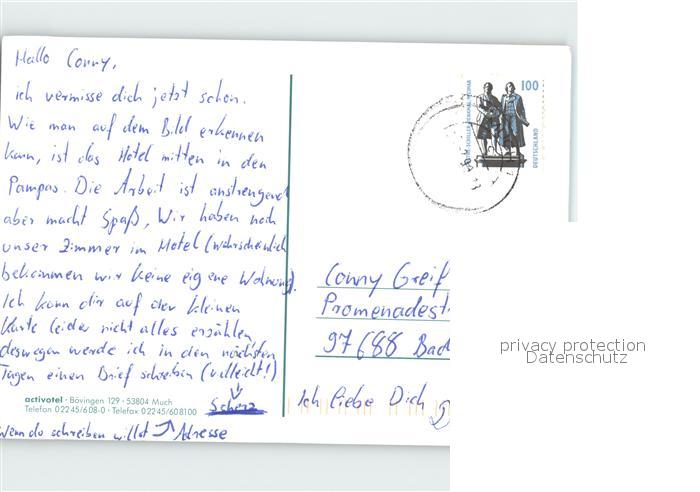 Hallo Conny,
ich vermisse dich jetzt schon.
Wie man auf dem Bild erkennen
kann, ist das Hotel mitten in den
Pampas. Die Arbeit ist anstrengend
aber macht Spaß, Wir haben noch
unser Zimmer im Hotel (wahrscheinlich
bekommen wir keine eigene Wohnung).
Ich kann dir auf der kleinen
Karte leider nicht alles erzählen,
deswegen werde ich in den nächsten
Tagen einen Brief schreiben (vielleicht!)
Scherz
activotel · Bövingen 129 · 53804 Much
Telefon 02245/608-0 · Telefax 02245/608100
Wenn du schreiben willst → Adresse
100
GOETHE-SCHILLER-DENKMAL WEIMAR
DEUTSCHLAND
Conny Greif
Promenadest
97688 Bad
Ich liebe Dich
privacy protection
Datenschutz